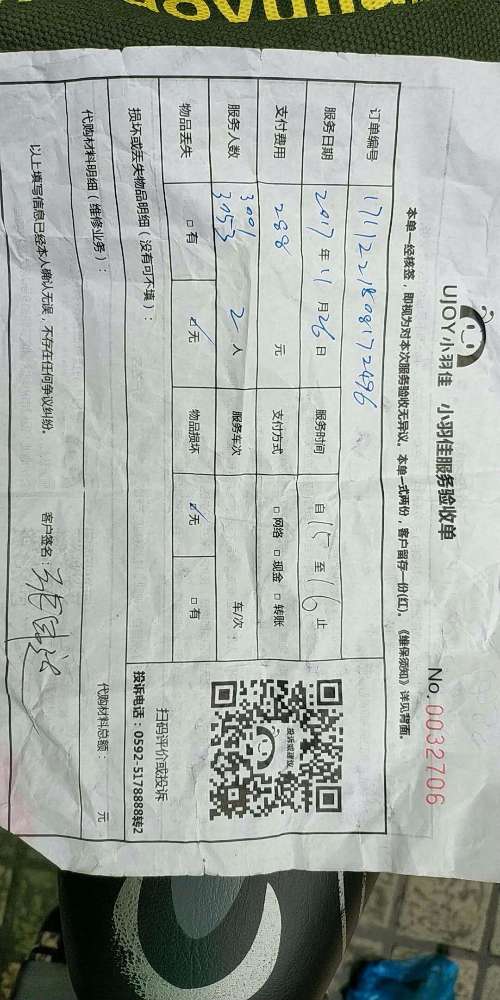 UJOY小羽佳 小羽佳服务验收单
No. 0032706
本单一经核签，即视为对本次服务验收无异议。本单一式两份，客户留存一份(红)。《维保须知》详见背面。
订单编号
服务日期 2017 年 11 月 26 日 服务时间 自 15 至 16 止
支付费用 288 元 支付方式 □网络 □现金 □转账
服务人数 3053 2 人 服务车次 车/次
物品丢失 □有 ☑无 物品损坏 ☑无 □有
损坏或丢失物品明细（没有可不填）：
投诉或建议
扫码评价或投诉
投诉电话：0592-5178888转2
代购材料明细（维修业务）：
代购材料总额： 元
以上填写信息已经本人确认无误，不存在任何争议纠纷。
客户签名：